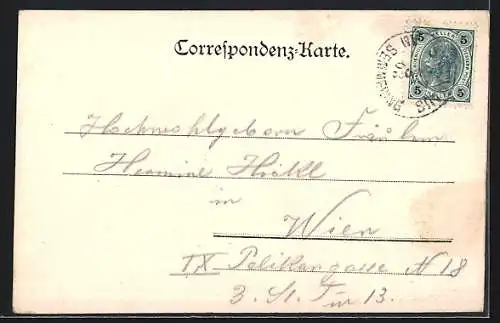 Correspondenz-Karte.
5 5
5 5
Hochwohlgeboren Fräulein
Hermine
in
Wien
IX Pelikangasse N 18
3. St. Tür 13.